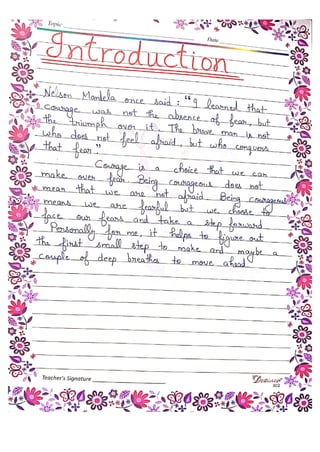 Topic
Date
Introduction
Nelson Mandela once said : "I learned that
courage was not the absence of fear, but
the triumph over it. The brave man is not
who does not feel afraid, but who conquers
that fear."
Courage is a choice that we can
make over fear. Being courageous does not
mean that we are not afraid. Being courageous
means we are fearful but we choose to
face our fears and take a step forward.
Personally for me, it helps to figure out
the first small step to make and maybe a
couple of deep breaths to move ahead.
Teacher's Signature